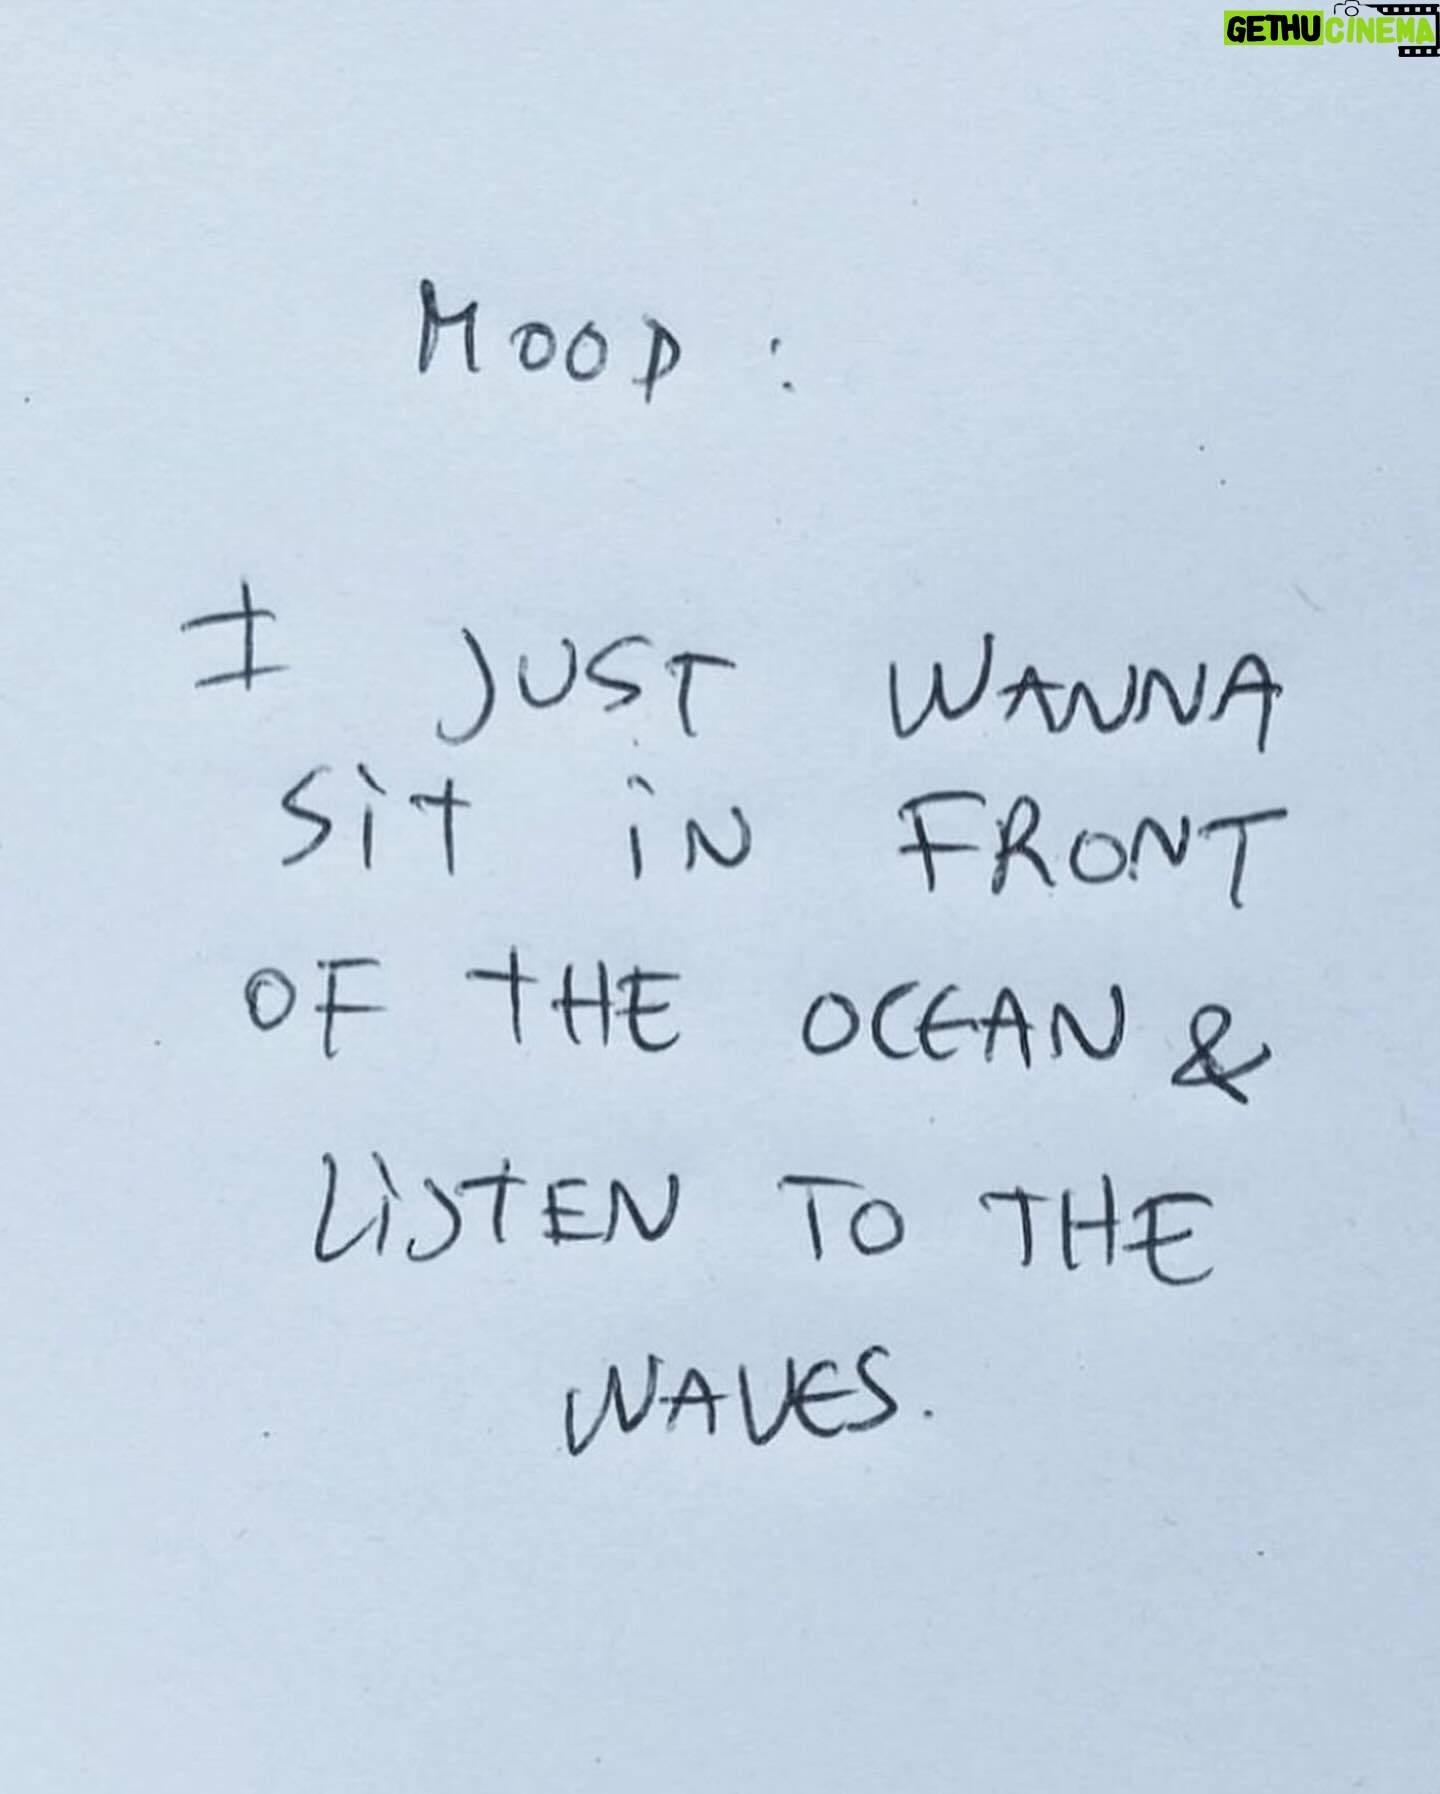 GETHUCINEMA
MOOD :
I JUST WANNA
SiT iN FRONT
OF THE OCEAN &
LiSTEN TO THE
WAVES.